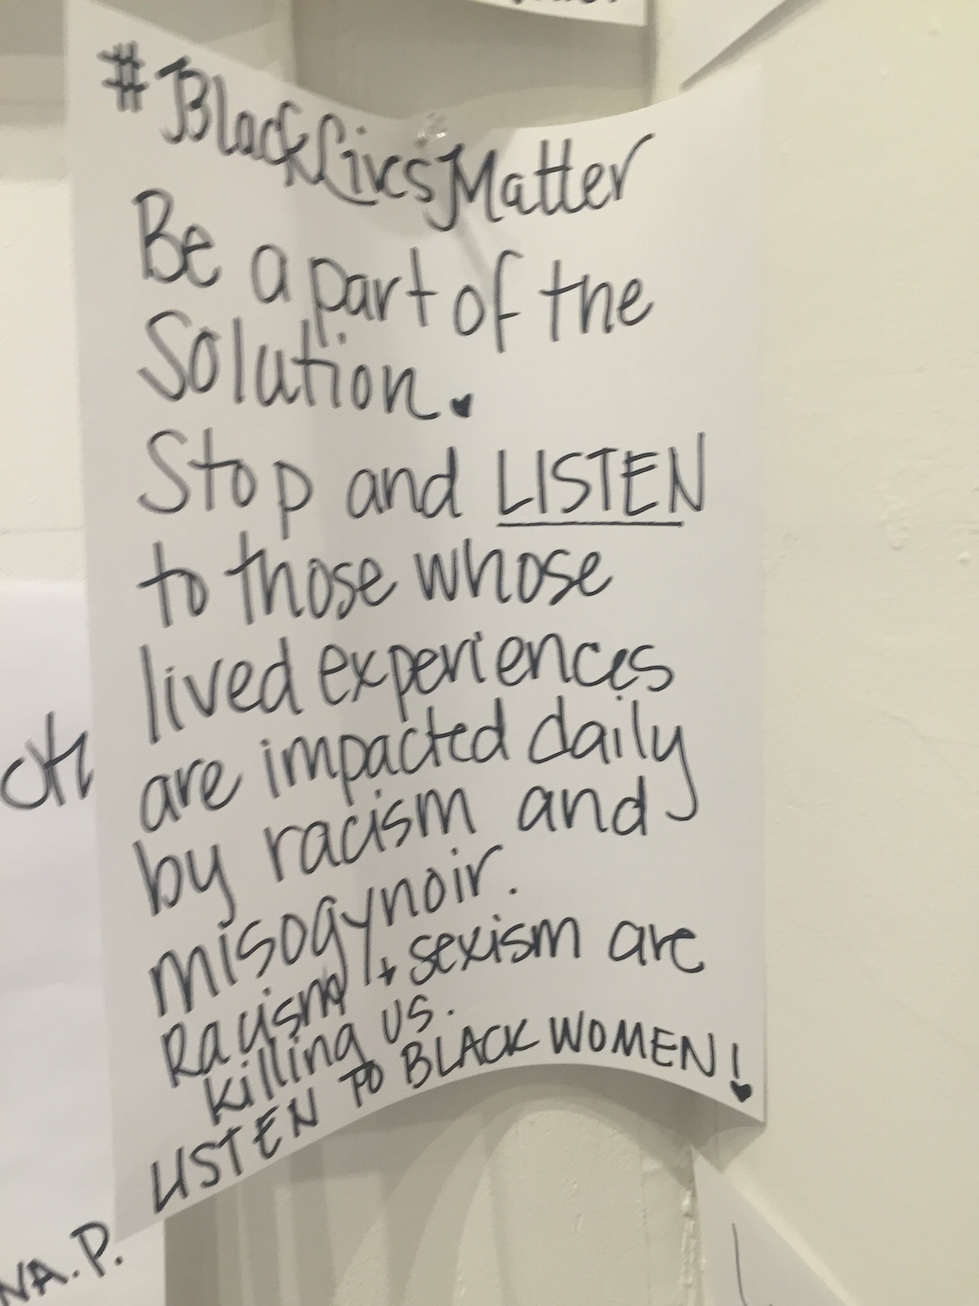 #BlackLivesMatter
Be a part of the
Solution.
Stop and LISTEN
to those whose
lived experiences
are impacted daily
by racism and
misogynoir.
Racism + sexism are
killing us.
LISTEN TO BLACK WOMEN!
NA. P.